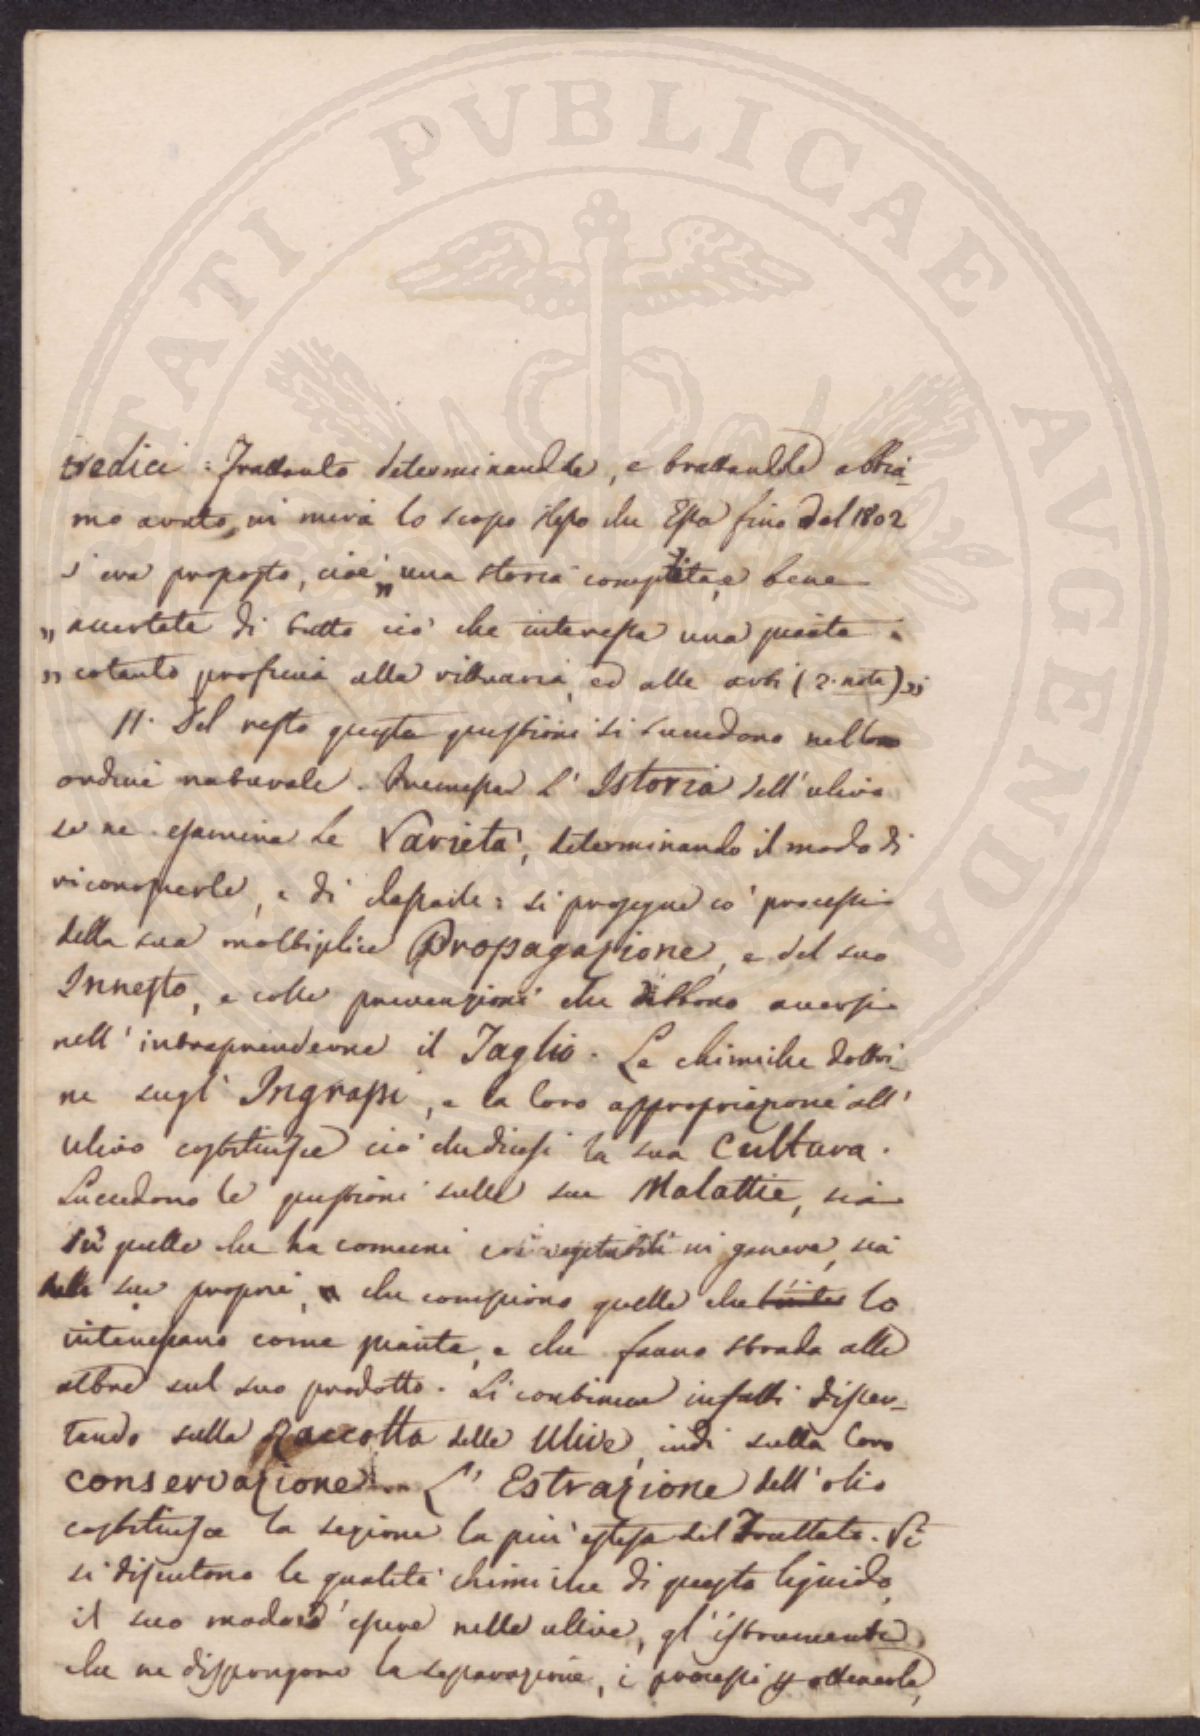 PVBLICAE AVGENDA
tredici: Trattanto determinandole, e trattandole abbia-
mo avuto in mira lo scopo stesso che Essa fino dal 1802
s'era proposto, cioè „ una storia completa, e bene
„ accertata di tutto ciò che interessa una pianta
„ cotanto proficua alla villuaria, ed alle arti (2. nota) „
11. Del resto queste questioni si succedono nel loro
ordine naturale. Premessa l'Istoria dell'ulivo
se ne esamina le Varietà, determinando il modo di
riconoscerle, e di classarle: si prosegue co' processi
della sua moltiplice Propagazione, e del suo
Innesto, e colle prevenzioni che debbono aversi
nell'intraprenderne il Taglio. Le chimiche dottri-
ne sugl'Ingrassi, e la loro appropriazione all'
ulivo costituisce ciò che dicesi la sua Cultura.
Succedono le questioni sulle sue Malattie, sia
di quelle che ha comuni coi vegetabili in genere, sia
delle sue proprie, che compiono quelle che lo
interessano come pianta, e che fanno strada alle
altre sul suo prodotto. Si continua infatti disser-
tando sulla Raccolta delle Ulive, indi sulla loro
conservazione. L'Estrazione dell'olio
costituisce la sezione la più estesa del Trattato. Vi
si discutono le qualità chimiche di questo liquido,
il suo modo d'essere nelle ulive, gl'istrumenti
che ne dispongono la separazione, i processi p ottenerlo,